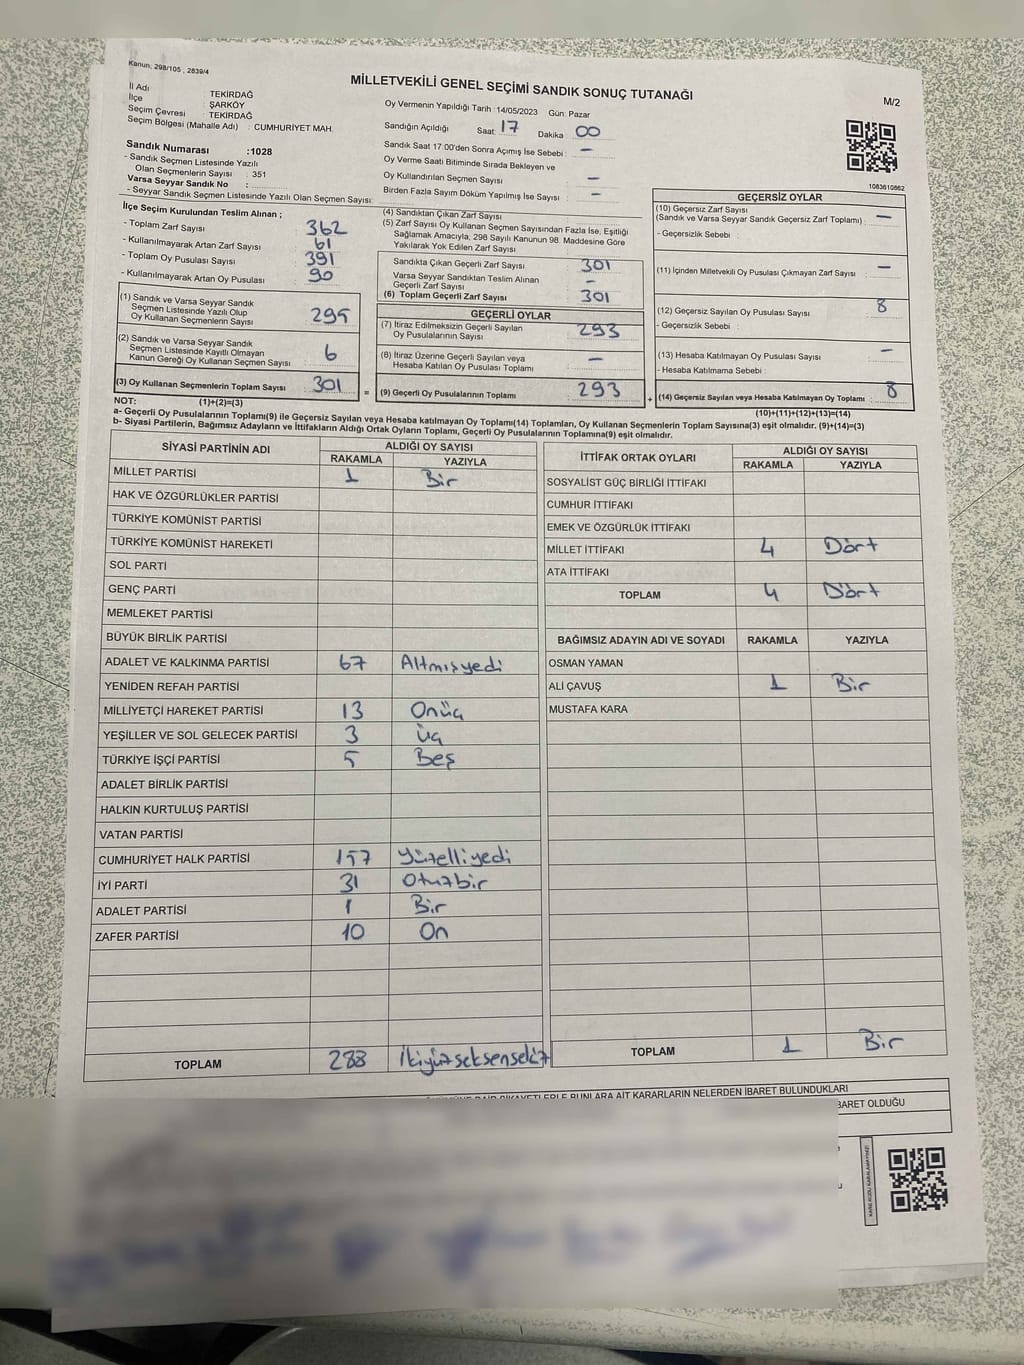 Kanun; 298/105 , 2839/4
MİLLETVEKİLİ GENEL SEÇİMİ SANDIK SONUÇ TUTANAĞI
M/2
İl Adı TEKİRDAĞ
İlçe : ŞARKÖY
Seçim Çevresi : TEKİRDAĞ
Seçim Bölgesi (Mahalle Adı) : CUMHURİYET MAH.
Sandık Numarası :1028
- Sandık Seçmen Listesinde Yazılı
Olan Seçmenlerin Sayısı : 351
Varsa Seyyar Sandık No :
- Seyyar Sandık Seçmen Listesinde Yazılı Olan Seçmen Sayısı:
Oy Vermenin Yapıldığı Tarih :14/05/2023 Gün: Pazar
Sandığın Açıldığı Saat: 17 Dakika 00
Sandık Saat 17.00'den Sonra Açımış İse Sebebi : –
Oy Verme Saati Bitiminde Sırada Bekleyen ve
Oy Kullandırılan Seçmen Sayısı –
Birden Fazla Sayım Döküm Yapılmış İse Sayısı : –
1083610862
İlçe Seçim Kurulundan Teslim Alınan ;
- Toplam Zarf Sayısı : 362
- Kullanılmayarak Artan Zarf Sayısı : 61
- Toplam Oy Pusulası Sayısı : 391
- Kullanılmayarak Artan Oy Pusulası : 90
(1) Sandık ve Varsa Seyyar Sandık
Seçmen Listesinde Yazılı Olup
Oy Kullanan Seçmenlerin Sayısı : 295
(2) Sandık ve Varsa Seyyar Sandık
Seçmen Listesinde Kayıtlı Olmayan
Kanun Gereği Oy Kullanan Seçmen Sayısı : 6
(3) Oy Kullanan Seçmenlerin Toplam Sayısı : 301
(4) Sandıktan Çıkan Zarf Sayısı :
(5) Zarf Sayısı Oy Kullanan Seçmen Sayısından Fazla İse, Eşitliği
Sağlamak Amacıyla, 298 Sayılı Kanunun 98. Maddesine Göre
Yakılarak Yok Edilen Zarf Sayısı :
Sandıkta Çıkan Geçerli Zarf Sayısı : 301
Varsa Seyyar Sandıktan Teslim Alınan
Geçerli Zarf Sayısı : –
(6) Toplam Geçerli Zarf Sayısı : 301
GEÇERLİ OYLAR
(7) İtiraz Edilmeksizin Geçerli Sayılan
Oy Pusulalarının Sayısı : 293
(8) İtiraz Üzerine Geçerli Sayılan veya
Hesaba Katılan Oy Pusulası Toplamı : –
= (9) Geçerli Oy Pusulalarının Toplamı : 293
GEÇERSİZ OYLAR
(10) Geçersiz Zarf Sayısı
(Sandık ve Varsa Seyyar Sandık Geçersiz Zarf Toplamı) : –
- Geçersizlik Sebebi :
(11) İçinden Milletvekili Oy Pusulası Çıkmayan Zarf Sayısı : –
(12) Geçersiz Sayılan Oy Pusulası Sayısı : 8
- Geçersizlik Sebebi :
(13) Hesaba Katılmayan Oy Pusulası Sayısı : –
- Hesaba Katılmama Sebebi :
+ (14) Geçersiz Sayılan veya Hesaba Katılmayan Oy Toplamı : 8
NOT: (1)+(2)=(3)
(10)+(11)+(12)+(13)=(14)
a- Geçerli Oy Pusulalarının Toplamı(9) ile Geçersiz Sayılan veya Hesaba katılmayan Oy Toplamı(14) Toplamları, Oy Kullanan Seçmenlerin Toplam Sayısına(3) eşit olmalıdır. (9)+(14)=(3)
b- Siyasi Partilerin, Bağımsız Adayların ve İttifakların Aldığı Ortak Oyların Toplamı, Geçerli Oy Pusulalarının Toplamına(9) eşit olmalıdır.
SİYASİ PARTİNİN ADI ALDIĞI OY SAYISI
RAKAMLA YAZIYLA
MİLLET PARTİSİ 1 Bir
HAK VE ÖZGÜRLÜKLER PARTİSİ
TÜRKİYE KOMÜNİST PARTİSİ
TÜRKİYE KOMÜNİST HAREKETİ
SOL PARTİ
GENÇ PARTİ
MEMLEKET PARTİSİ
BÜYÜK BİRLİK PARTİSİ
ADALET VE KALKINMA PARTİSİ 67 Altmışyedi
YENİDEN REFAH PARTİSİ
MİLLİYETÇİ HAREKET PARTİSİ 13 Onüç
YEŞİLLER VE SOL GELECEK PARTİSİ 3 Üç
TÜRKİYE İŞÇİ PARTİSİ 5 Beş
ADALET BİRLİK PARTİSİ
HALKIN KURTULUŞ PARTİSİ
VATAN PARTİSİ
CUMHURİYET HALK PARTİSİ 157 Yüzelliyedi
İYİ PARTİ 31 Otuzbir
ADALET PARTİSİ 1 Bir
ZAFER PARTİSİ 10 On
TOPLAM 288 İkiyüzseksensekiz
İTTİFAK ORTAK OYLARI ALDIĞI OY SAYISI
RAKAMLA YAZIYLA
SOSYALİST GÜÇ BİRLİĞİ İTTİFAKI
CUMHUR İTTİFAKI
EMEK VE ÖZGÜRLÜK İTTİFAKI
MİLLET İTTİFAKI 4 Dört
ATA İTTİFAKI
TOPLAM 4 Dört
BAĞIMSIZ ADAYIN ADI VE SOYADI RAKAMLA YAZIYLA
OSMAN YAMAN
ALİ ÇAVUŞ 1 Bir
MUSTAFA KARA
TOPLAM 1 Bir
BUNLARA AİT KARARLARIN NELERDEN İBARET BULUNDUKLARI
İBARET OLDUĞU